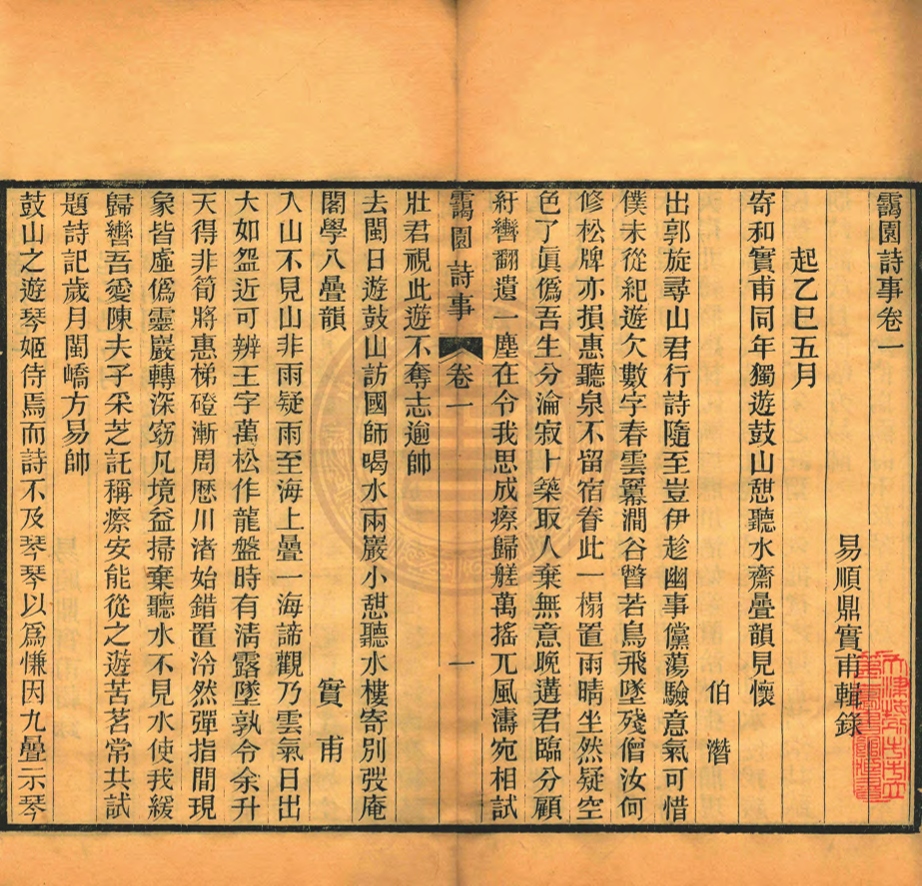 靄園詩事卷一
易順鼎實甫輯錄
起乙巳五月
寄和實甫同年獨遊鼓山憇聽水齋疊韻見懷
伯潛
出郭旋尋山君行詩隨至豈伊趁幽事儻蕩驗意氣可惜
僕未從紀遊欠數字春雲羃澗谷瞥若鳥飛墜殘僧汝何
修松牌亦損惠聽泉不留宿眷此一榻置雨晴坐然疑空
色了眞僞吾生分淪寂卜築取人棄無意晚遘君臨分顧
紆轡翻遺一塵在令我思成瘵歸艖萬搖兀風濤宛相試
靄園詩事 卷一 一
壯君視此遊不奪志逾帥
去閩日遊鼓山訪國師喝水兩巖小憇聽水樓寄別弢庵
閣學八疊韻
實甫
入山不見山非雨疑雨至海上疊一海諦觀乃雲氣日出
大如盌近可辨王字萬松作龍盤時有淸露墜孰令余升
天得非筍將惠梯磴漸周歷川渚始錯置泠然彈指間現
象皆虛僞靈巖轉深窈凡境益掃棄聽水不見水使我緩
歸轡吾愛陳夫子采芝託稱瘵安能從之遊苦茗常共試
題詩記歲月閩嶠方易帥
鼓山之遊琴姬侍焉而詩不及琴琴以爲慊因九疊示琴